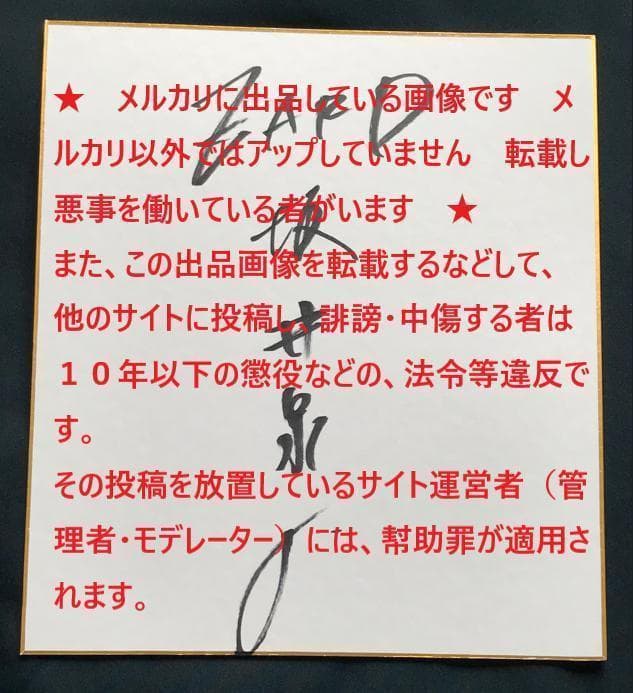 ★　メルカリに出品している画像です　メ
ルカリ以外ではアップしていません　転載し
悪事を働いている者がいます　★
また、この出品画像を転載するなどして、
他のサイトに投稿し、誹謗・中傷する者は
１０年以下の懲役などの、法令等違反で
す。
その投稿を放置しているサイト運営者（管
理者・モデレーター）には、幇助罪が適用さ
れます。
ZARD
坂井泉